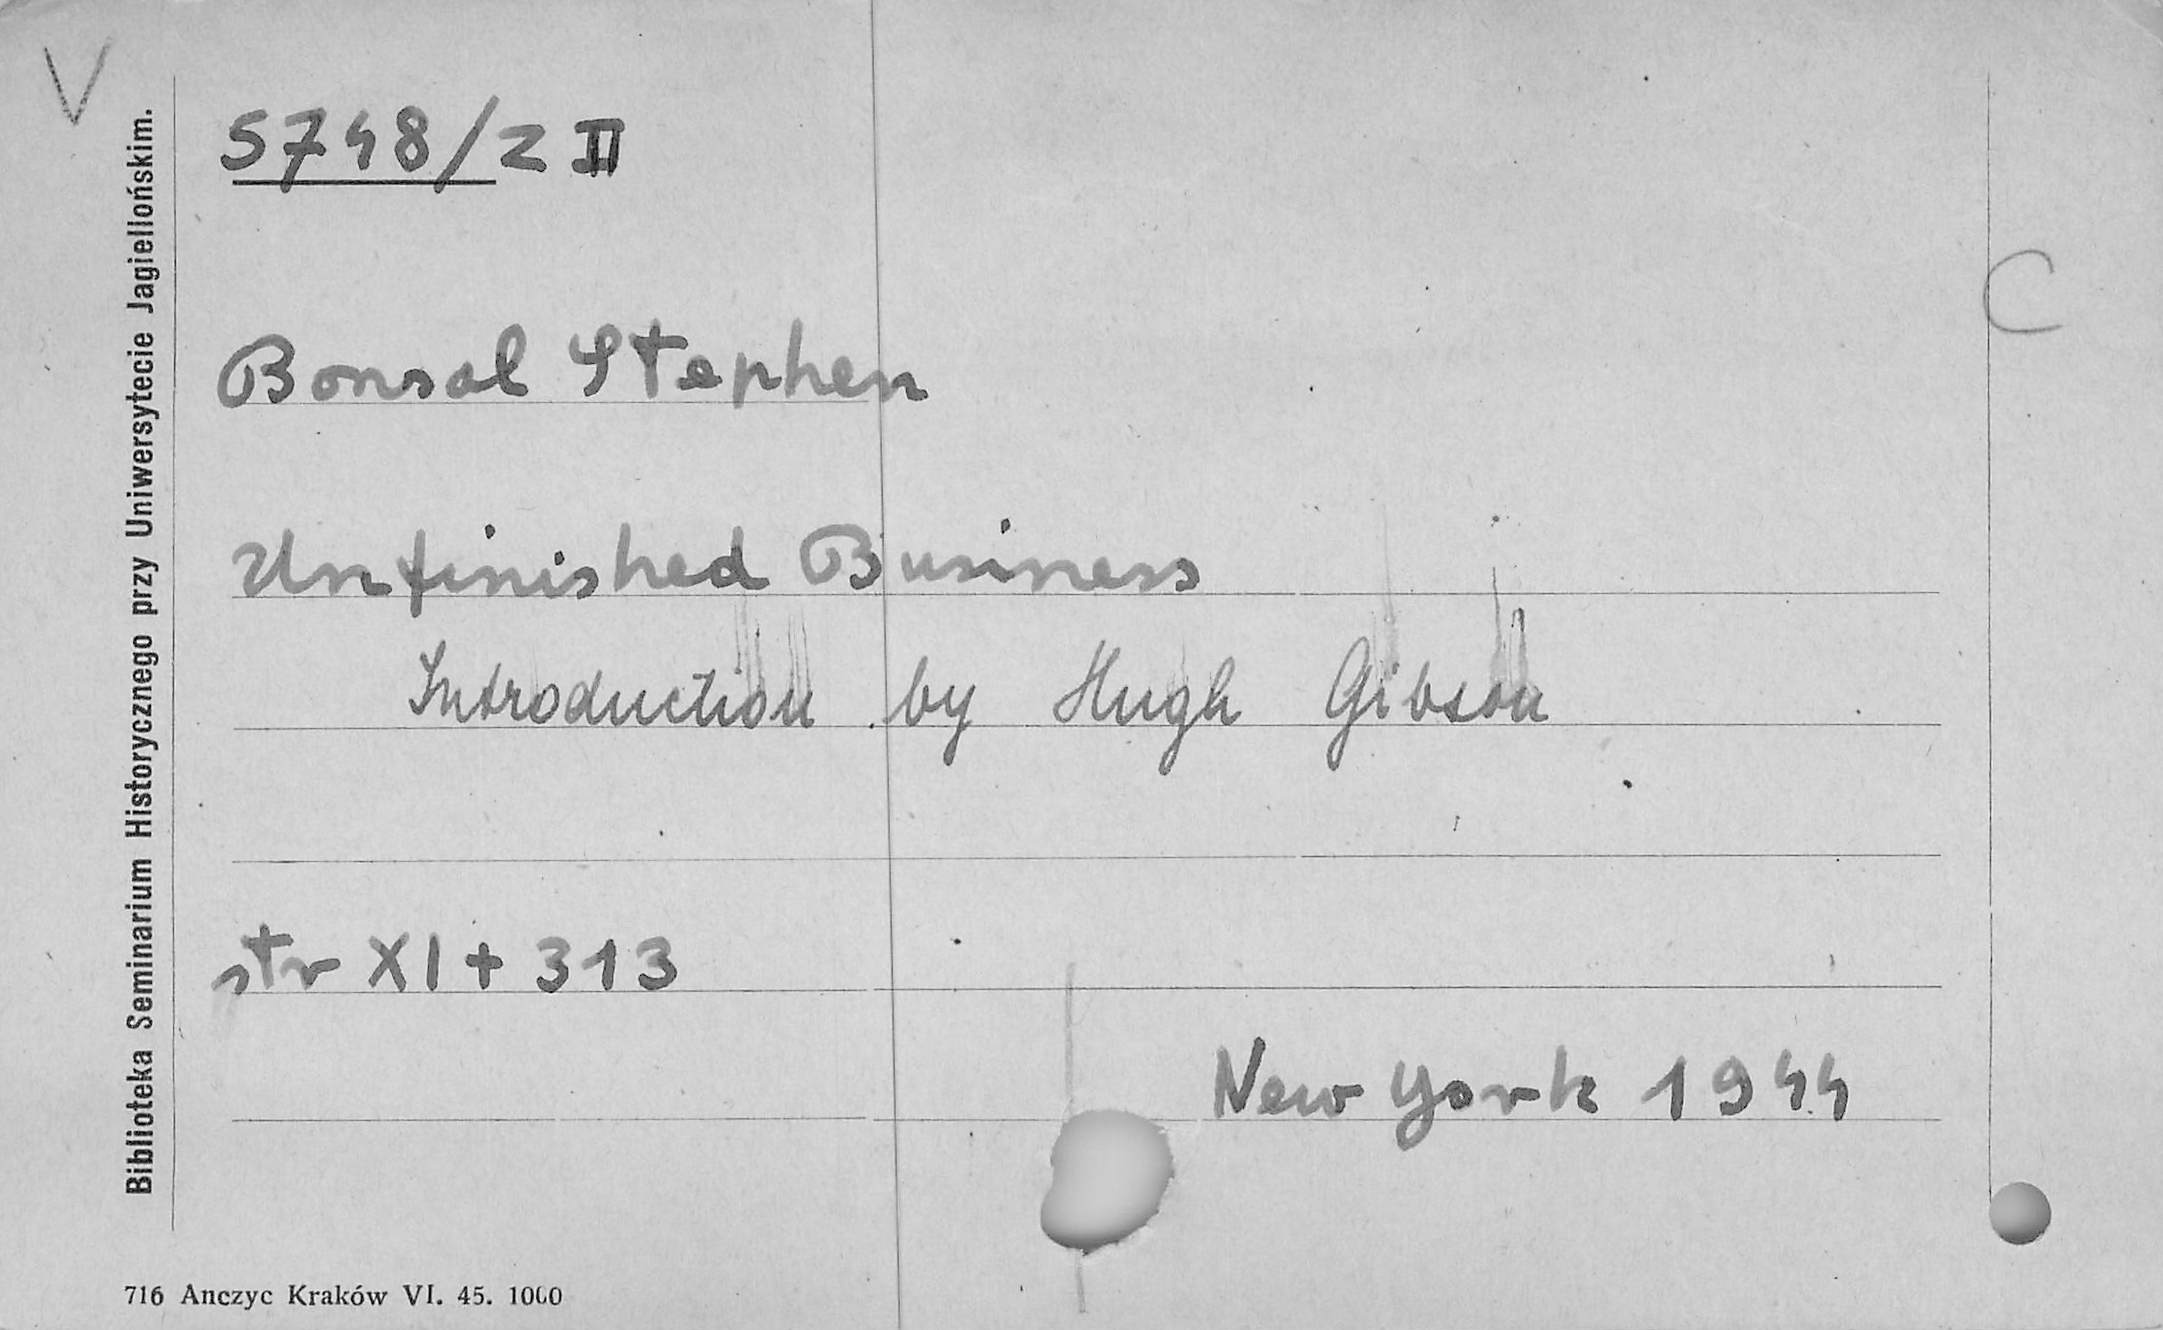 V
5748/2 II
C
Bonsal Stephen
Unfinished Business
Introduction by Hugh Gibson
str XI + 313
New York 1944
Biblioteka Seminarium Historycznego przy Uniwersytecie Jagiellońskim.
716 Anczyc Kraków VI. 45. 1000